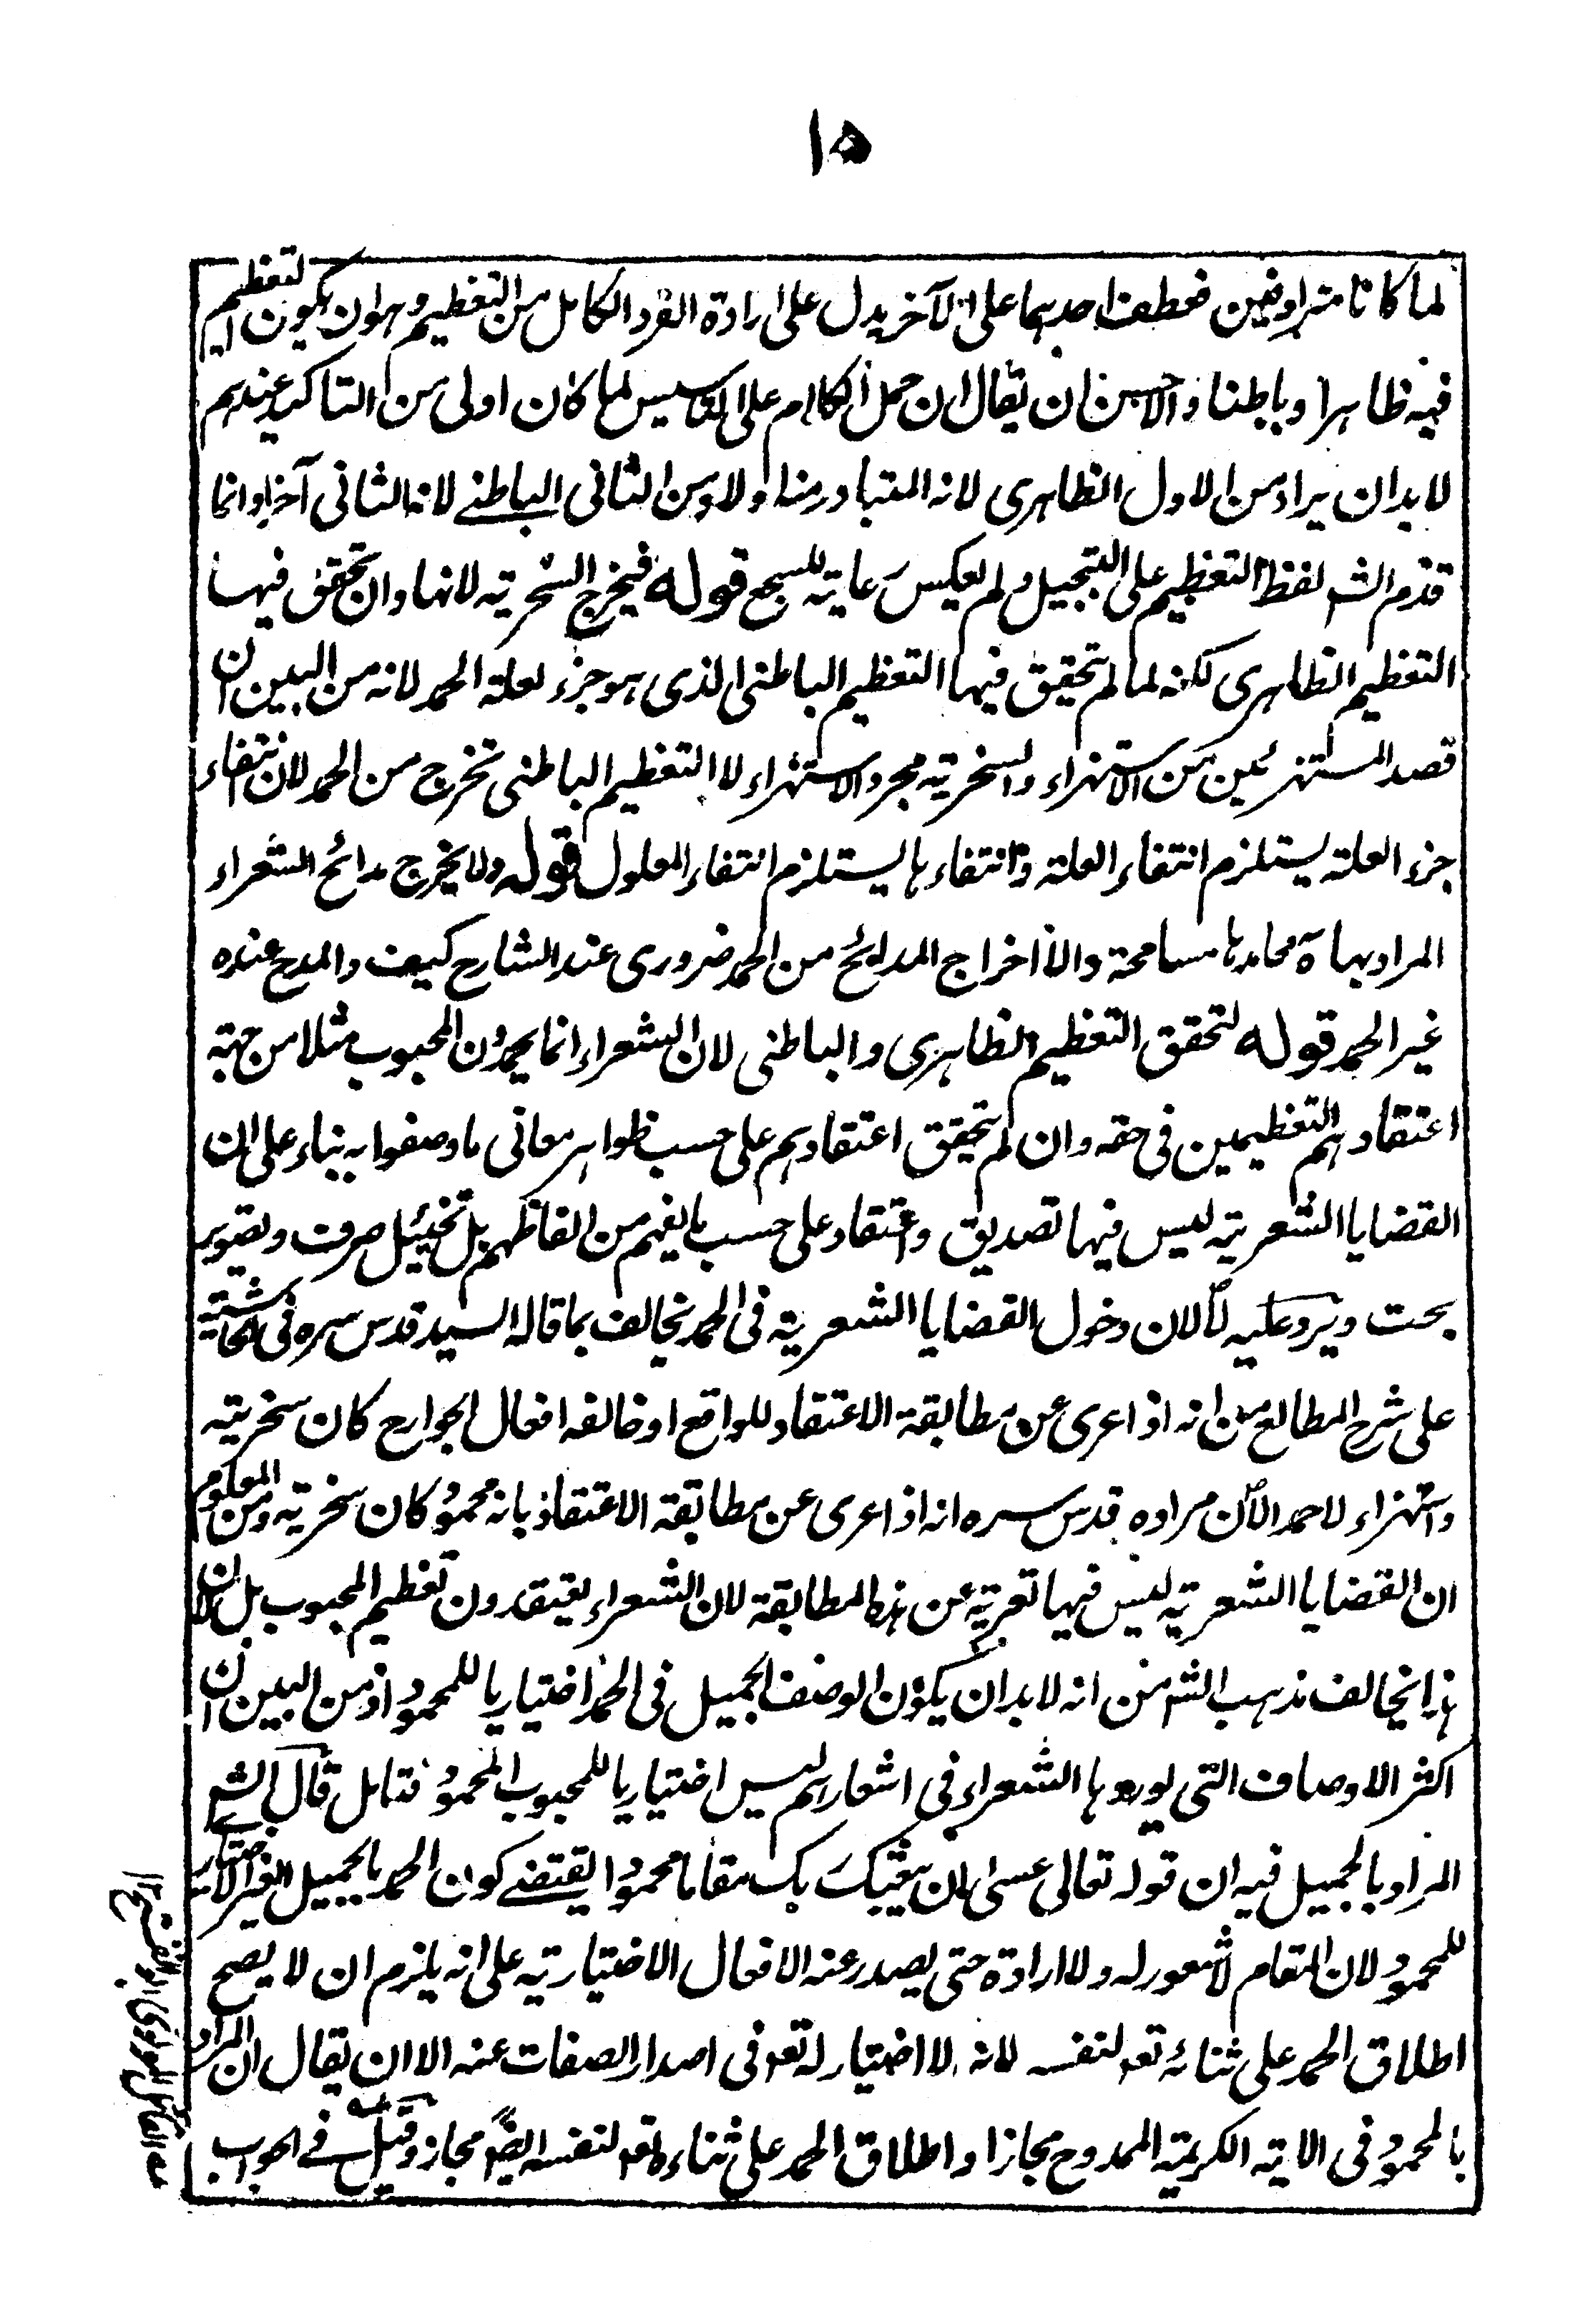 ١٥
لما كانا مترادفين فعطف احدهما على الآخر يدل على ارادة الفرد الكامل من التعظيم وهو ان يكون التعظيم
فيه ظاهرا وباطنا والاحسن ان يقال ان حمل الكلام على التاسيس لما كان اولى من التاكيد عندهم
لابد ان يراد من الاول الظاهرى لانه المتبادر منه اولا ومن الثانى الباطنے لانه الثانى آخرا وانما
قدم الشـ لفظ التعظيم على التبجيل ولم يعكس رعاية للسجع قوله فيخرج السخرية لانها وان تحقق فيها
التعظيم الظاهرى لكنه لما لم تحقيق فيها التعظيم الباطنى الذى هو جزء لعلة الحمد لانه من البين ان
قصد المستهزئين من الاستهزاء والسخرية مجرد الاستهزاء لا التعظيم الباطنى تخرج من الحمد لان انتفاء
جزء العلة يستلزم انتفاء العلة وانتفاءها يستلزم انتفاء المعلول قوله ولا يخرج مدائح الشعراء
المراد بها آه محامدها مسامحة والا اخراج المدائح من الحمد ضرورى عند الشارح كيف والمدح عنده
غير الحمد قوله لتحقق التعظيم الظاهرى والباطنى لان الشعراء انما يحمدون المحبوب مثلا من جهة
اعتقادهم التعظيمين فى حقه وان لم تحقيق اعتقادهم على حسب ظواهر معانى ما وصفوا به بناء على ان
القضايا الشعرية ليس فيها تصديق واعتقاد على حسب ما يفهم من الفاظهم بل تخييل صرف وتصوير
بحت ويرد عليه لا لان دخول القضايا الشعرية فى الحمد يخالف بما قاله السيد قدس سره فى الحاشية
على شرح المطالع من انه اذا عرى عن مطابقة الاعتقاد للواقع او خالفه افعال الجوارح كان سخرية
واستهزاء لا حمدا لان مراده قدس سره انه اذا عرى عن مطابقة الاعتقاد بانه محمود كان سخرية ومن المعلوم
ان القضايا الشعرية ليس فيها تعرية عن هذه المطابقة لان الشعراء يعتقدون تعظيم المحبوب بل لان
هذا يخالف مذهب الشـ من انه لابد ان يكون الوصف الجميل فى الحمد اختياريا للمحمود اذ من البين ان
اكثر الاوصاف التى يوردها الشعراء فى اشعارهم ليس اختياريا للمحبوب المحمود فتامل قال الشـ
المراد بالجميل فيه ان قوله تعالى عسى ان يبعثك ربك مقاما محمودا يقتضے كون الحمد بالجميل الغير الاختيارے
للمحمود لان المقام لا شعور له ولا ارادة حتى يصدر عنه الافعال الاختيارية على انه يلزم ان لا يصح
اطلاق الحمد على ثنائه تعـ لنفسه لانه لا اختيار له تعـ فى اصدار الصفات عنه الا ان يقال ان المراد
بالمحمود فى الاية الكريمة الممدوح مجازا واطلاق الحمد على ثناءه تعـ لنفسه ايضا مجاز وقيل فے الجواب